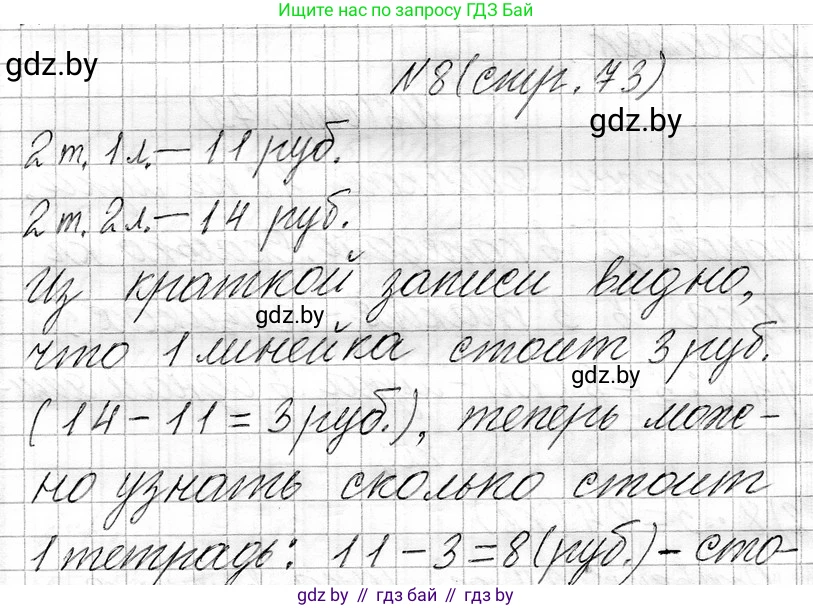 Ищите нас по запросу ГДЗ Бай
gdz.by
№8 (стр. 73)
gdz.by
2 т. 1 л. — 11 руб.
2 т. 2 л. — 14 руб.
Из краткой записи видно,
gdz.by
что 1 линейка стоит 3 руб.
gdz.by
(14 - 11 = 3 руб.), теперь мож-
но узнать сколько стоит
1 тетрадь: 11 - 3 = 8 (руб.) - сто-
gdz.by // гдз бай // gdz.by